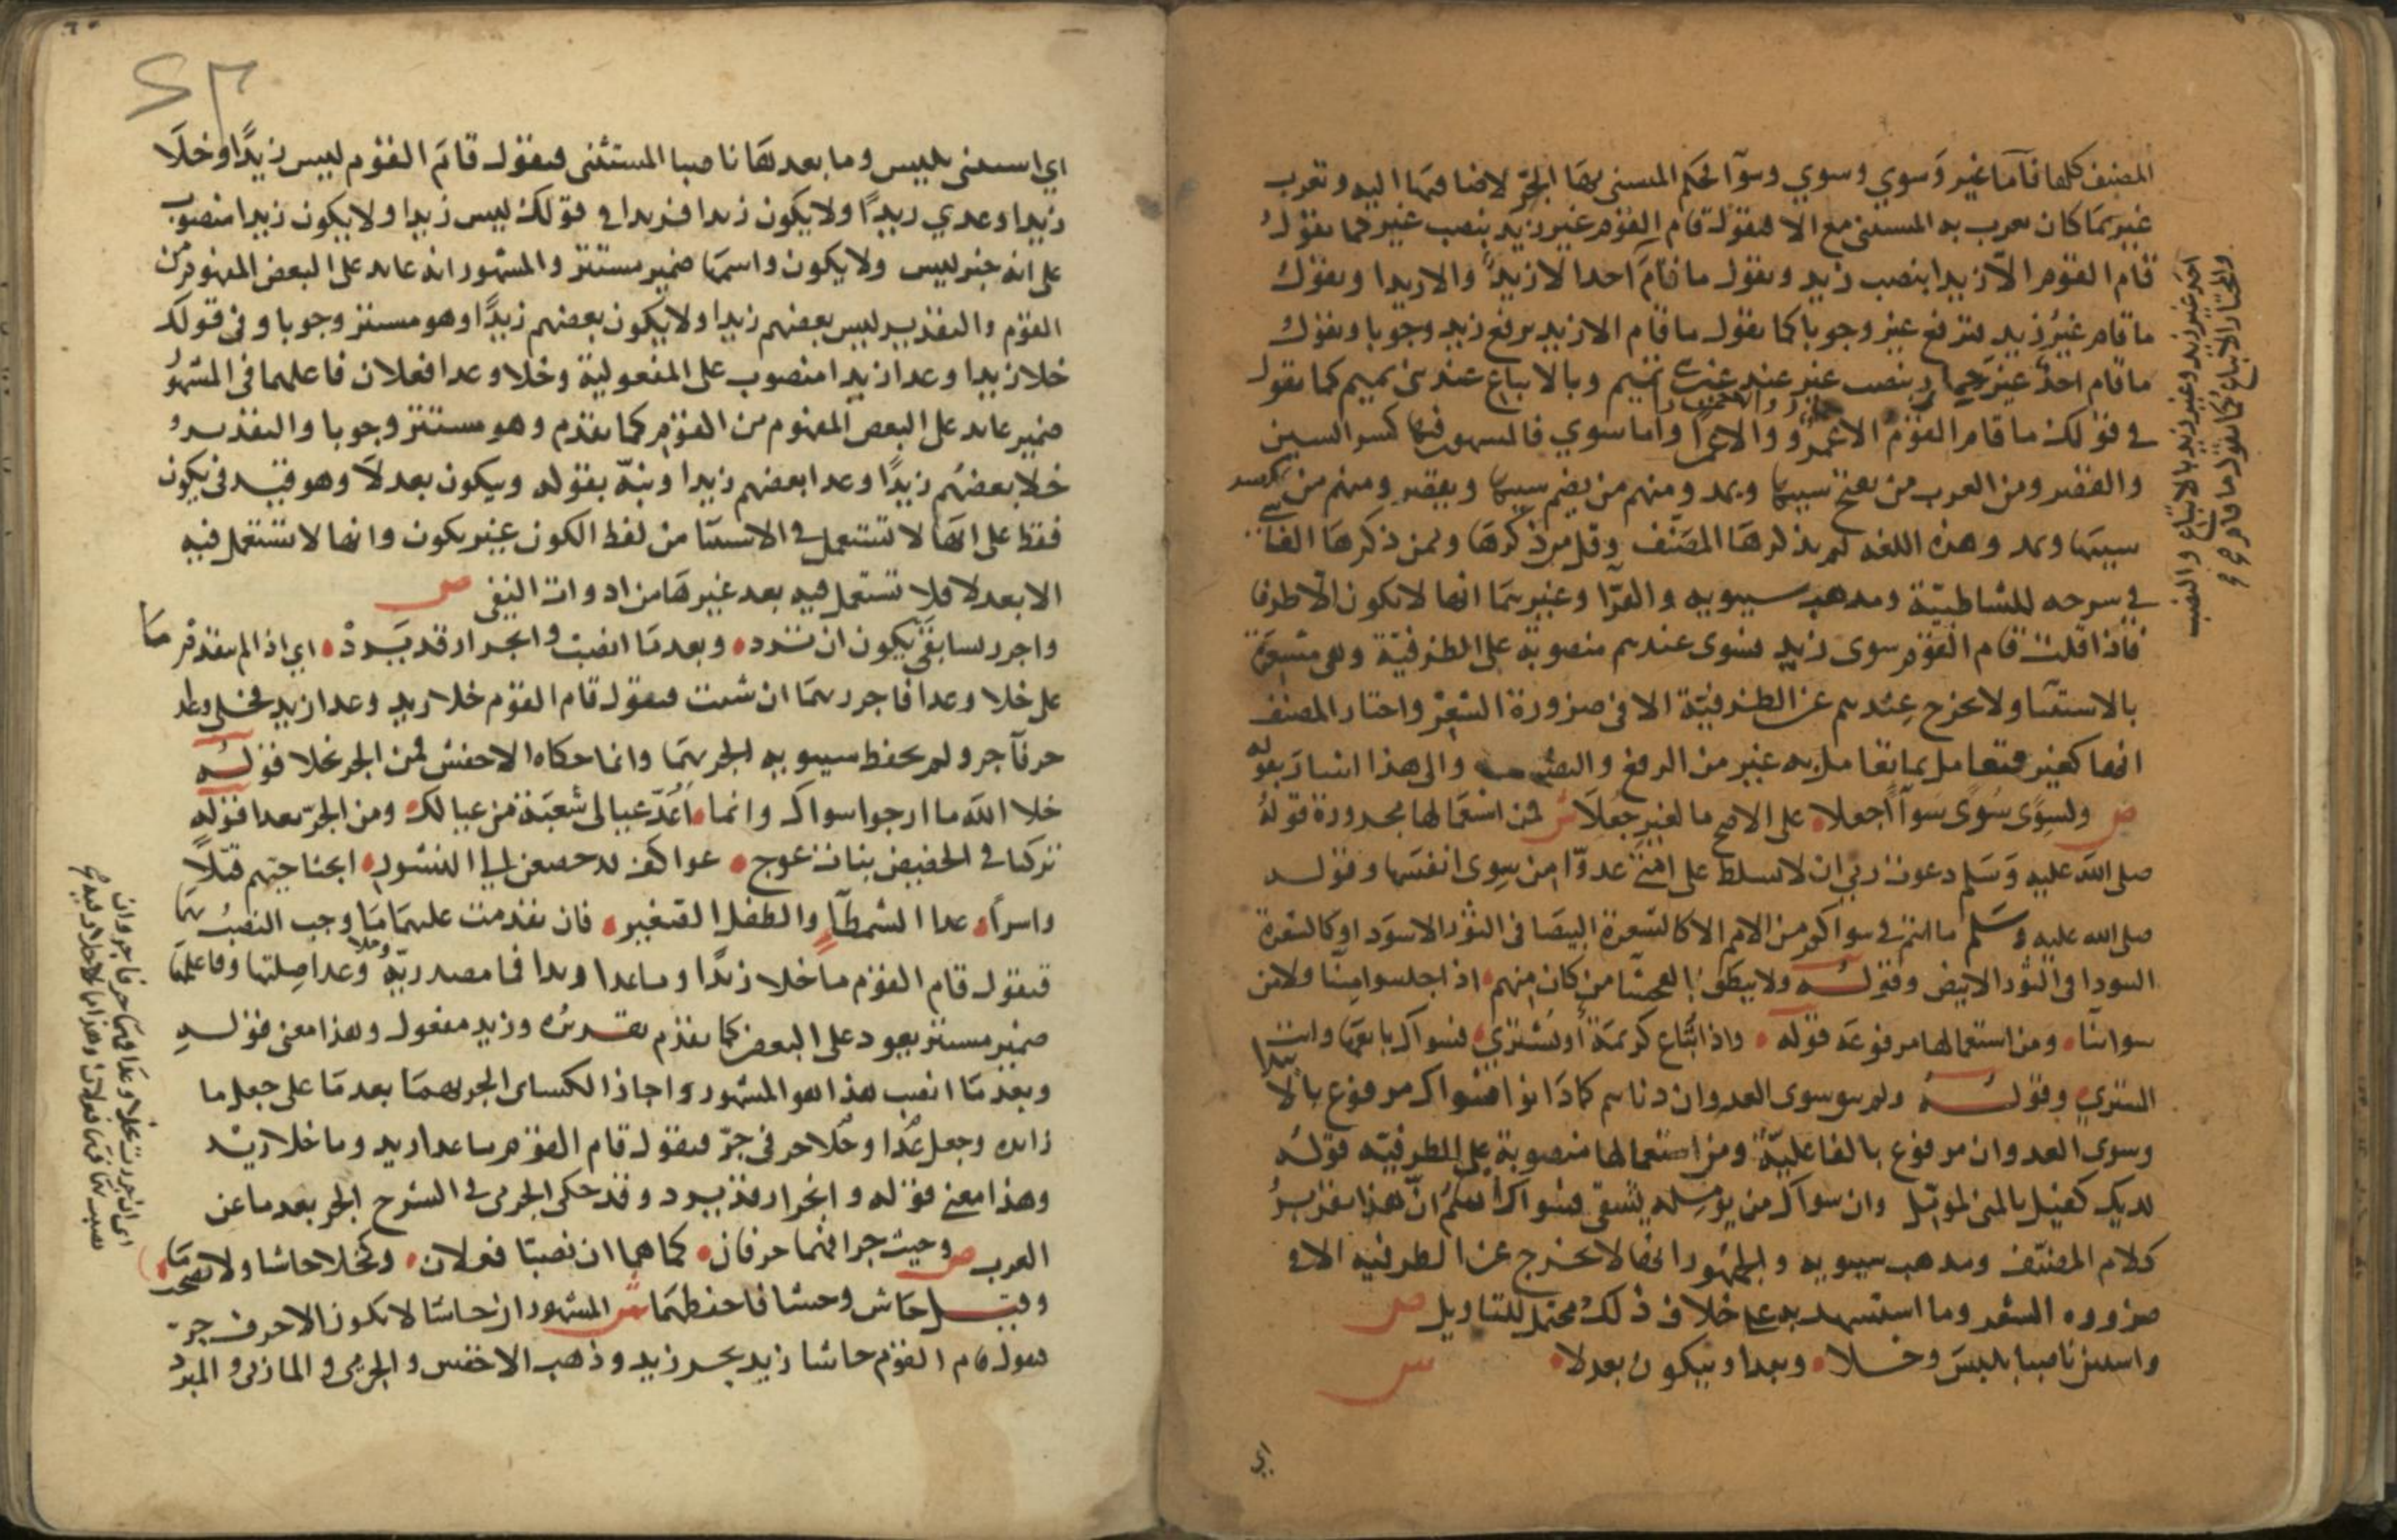 المصنف كلها فاما غير وسوي وسوي وسوآ فحكم المستثنى بها الجر لاضافتها اليه وتعرب
غير بما كان يعرب به المستثنى مع الا فتقول قام القوم غير زيد بنصب غير كما تقول
قام القوم الا زيدا بنصب زيد وتقول ما قام احد الا زيد والا زيدا وتقول
ما قام غير زيد فترفع غير وجوبا كما تقول ما قام الا زيد برفع زيد وجوبا وتقول
ما قام احد غير حمار بنصب غير عند غير بني تميم وبالاتباع عند بني تميم كما تقول
في قولك ما قام القوم الا حمار والا حمارا واما سوي فالمشهور فيها كسر السين
والقصر ومن العرب من يفتح سينها ويمد ومنهم من يضم سينها ويقصر ومنهم من يكسر
سينها ويمد وهذه اللغه لم يذكرها المصنف وقل من ذكرها وممن ذكرها الفاسي
في شرحه للشاطبية ومذهب سيبويه والفرا وغيرهما انها لا تكون الا ظرفا
فاذا قلت قام القوم سوى زيد فسوى عندهم منصوبة على الظرفية وهي مشعرة
بالاستثنا ولا تخرج عندهم عن الظرفية الا في ضرورة الشعر واختار المصنف
انها كغير فتعامل بما تعامل به غير من الرفع والنصب والى هذا اشار بقوله
ص ولسوى سوى سوآ اجعلا على الاصح ما لغير جعلا ش فمن استعمالها مجرورة قوله
صلى الله عليه وسلم دعوت ربي ان لا يسلط على امتي عدوا من سوى انفسها وقوله
صلى الله عليه وسلم ما انتم في سواكم من الامم الا كالشعرة البيضا في الثور الاسود او كالشعرة
السودا في الثور الابيض وقوله ولا ينطق الفحشا من كان منهم اذا جلسوا منا ولا من
سوائنا ومن استعمالها مرفوعه قوله واذا تباع كريمة او تشتري فسواك بايعها وانت
المشتري وقوله ولم يبق سوى العدوان دناهم كما دانوا فسواك مرفوع بالابتدا
وسوى العدوان مرفوع بالفاعلية ومن استعمالها منصوبة على الظرفيه قوله
لديك كفيل بالمنى لمؤمل وان سواك من يؤمله يشقى فسواك اسم ان هذا تقرير
كلام المصنف ومذهب سيبويه والجمهور انها لا تخرج عن الظرفيه الا في
ضروره الشعر وما استشهد به على خلاف ذلك محتمل للتاويل ص
واستثن ناصبا بليس وخلا وبعدا وبيكون بعد لا ش
اي
والمختار الاتباع كما تقول ما قام
احد غير زيد وغير زيد بالاتباع والنصب
اي استثنى بليس وما بعدها ناصبا المستثنى فتقول قام القوم ليس زيدا وخلا
زيدا وعدي زيدا ولا يكون زيدا فزيدا في قولك ليس زيدا ولا يكون زيدا منصوب
على انه خبر ليس ولا يكون واسمها ضمير مستتر والمشهور انه عايد على البعض المفهوم من
القوم والتقدير ليس بعضهم زيدا ولا يكون بعضهم زيدا وهو مستتر وجوبا وفى قولك
خلا زيدا وعدا زيدا منصوب على المفعولية وخلا وعدا فعلان فاعلهما فى المشهور
ضمير عايد على البعض المفهوم من القوم كما تقدم وهو مستتر وجوبا والتقدير
خلا بعضهم زيدا وعدا بعضهم زيدا ونبه بقوله وبيكون بعد لا وهو قيد في يكون
فقط على انها لا تستعمل في الاستثنا من لفظ الكون غير يكون وانها لا تستعمل فيه
الا بعد لا فلا تستعمل فيه بعد غيرها من ادوات النفى ص
واجرر بسابقي يكون ان ترد وبعد ما انصب وانجرار قد يرد اي اذا لم يتقدم ما
على خلا وعدا فاجرر بهما ان شئت فتقول قام القوم خلا زيد وعدا زيد فخلى وعدا
حرفا جر ولم يحفظ سيبويه الجر بهما وانما حكاه الاخفش فمن الجر بخلا قوله
خلا الله ما ارجوا سواك وانما اعد عيالى شعبة من عيالك ومن الجر بعدا قوله
تركنا في الحضيض بنات عوج عواكف قد خضعن الي النسور ابحنا حيهم قتلا
واسرا عدا الشمطآ والطفل الصغير فان تقدمت عليهما ما وجب النصب بهما
فتقول قام القوم ما خلا زيدا وما عدا زيدا فما مصدرية وخلا وعدا صلتها وفاعلهما
ضمير مستتر يعود على البعض كما تقدم تقديره وزيد مفعول وهذا معنى قوله
وبعد ما انصب هذا هو المشهور واجاز الكساى الجر بهما بعد ما على جعل ما
زايده وجعل عدا وخلا حرفي جر فتقول قام القوم ما عدا زيد وما خلا زيد
وهذا معنى قوله وانجرار قد يرد وقد حكى الجرمى في الشرح الجر بعد ما عن
العرب ص وحيث جرا فهما حرفان كما هما ان نصبا فعلان وكخلا حاشا ولا تصحب ما
وقيل حاش وحشا فاحفظهما ش المشهور ان حاشا لا تكون الا حرف جر
فتقول قام القوم حاشا زيد بجر زيد وذهب الاخفش والجرمى والمازنى والمبرد
اى ان جررت بخلا وعدا فهما حرفا جر وان
نصبت بهما فهما فعلان وهذا مما لا خلاف فيه